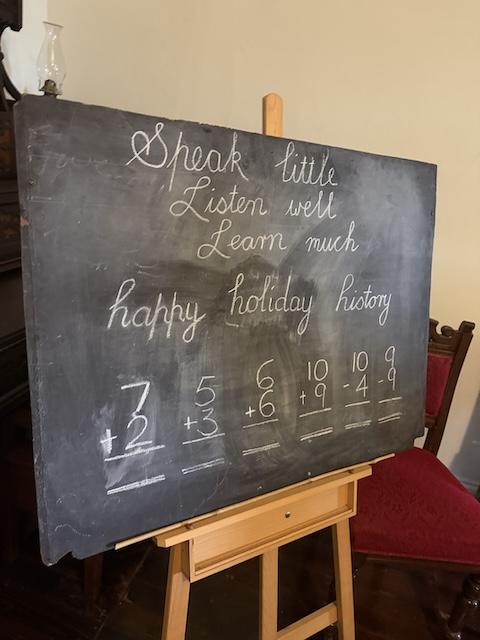 Speak little
Listen well
Learn much
happy holiday history
7 5 6 10 10 9
+2 +3 +6 +9 -4 -9